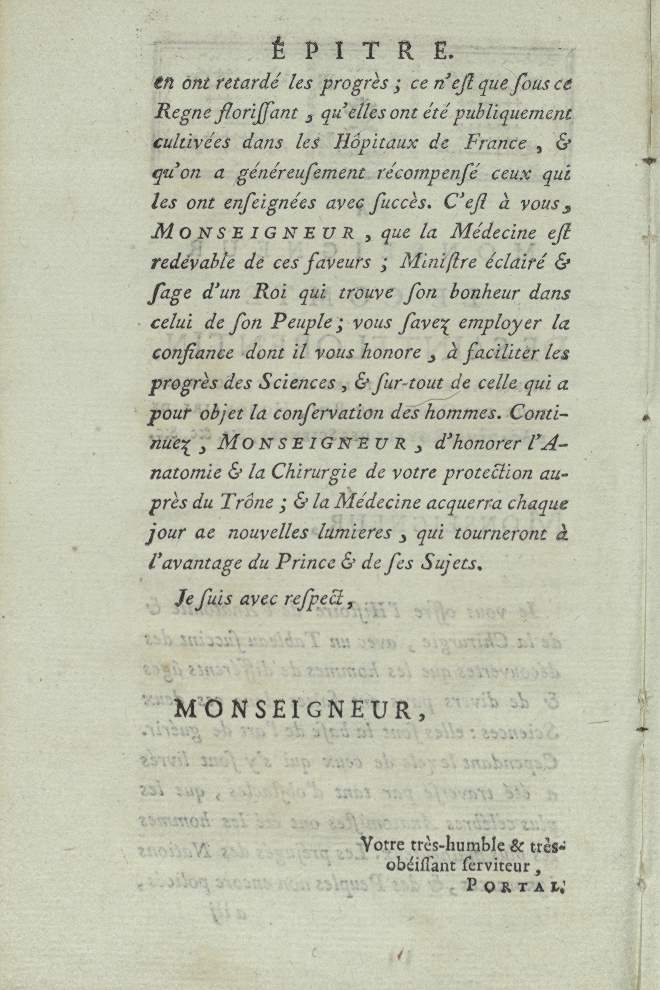 ÉPITRE.
en ont retardé les progrès ; ce n'eſt que ſous ce
Regne floriſſant , qu'elles ont été publiquement
cultivées dans les Hôpitaux de France , &
qu'on a généreuſement récompenſé ceux qui
les ont enſeignées avec ſuccès. C'eſt à vous,
MONSEIGNEUR , que la Médecine eſt
redévable de ces faveurs ; Miniſtre éclairé &
ſage d'un Roi qui trouve ſon bonheur dans
celui de ſon Peuple ; vous ſavez employer la
confiance dont il vous honore , à faciliter les
progrès des Sciences , & ſur-tout de celle qui a
pour objet la conſervation des hommes. Conti-
nuez , MONSEIGNEUR , d'honorer l'A-
natomie & la Chirurgie de votre protection au-
près du Trône ; & la Médecine acquerra chaque
jour de nouvelles lumieres , qui tourneront à
l'avantage du Prince & de ſes Sujets.
Je ſuis avec reſpect,
MONSEIGNEUR,
Votre très-humble & très-
obéiſſant ſerviteur ,
PORTAL.